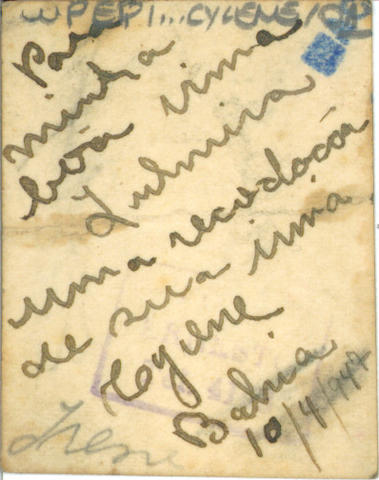 PEPI...CYGENE/
Para
minha
bôa irma
Zulmira
uma recordação
de sua irmã
Cygene
Bahia
10/4/947
Irene